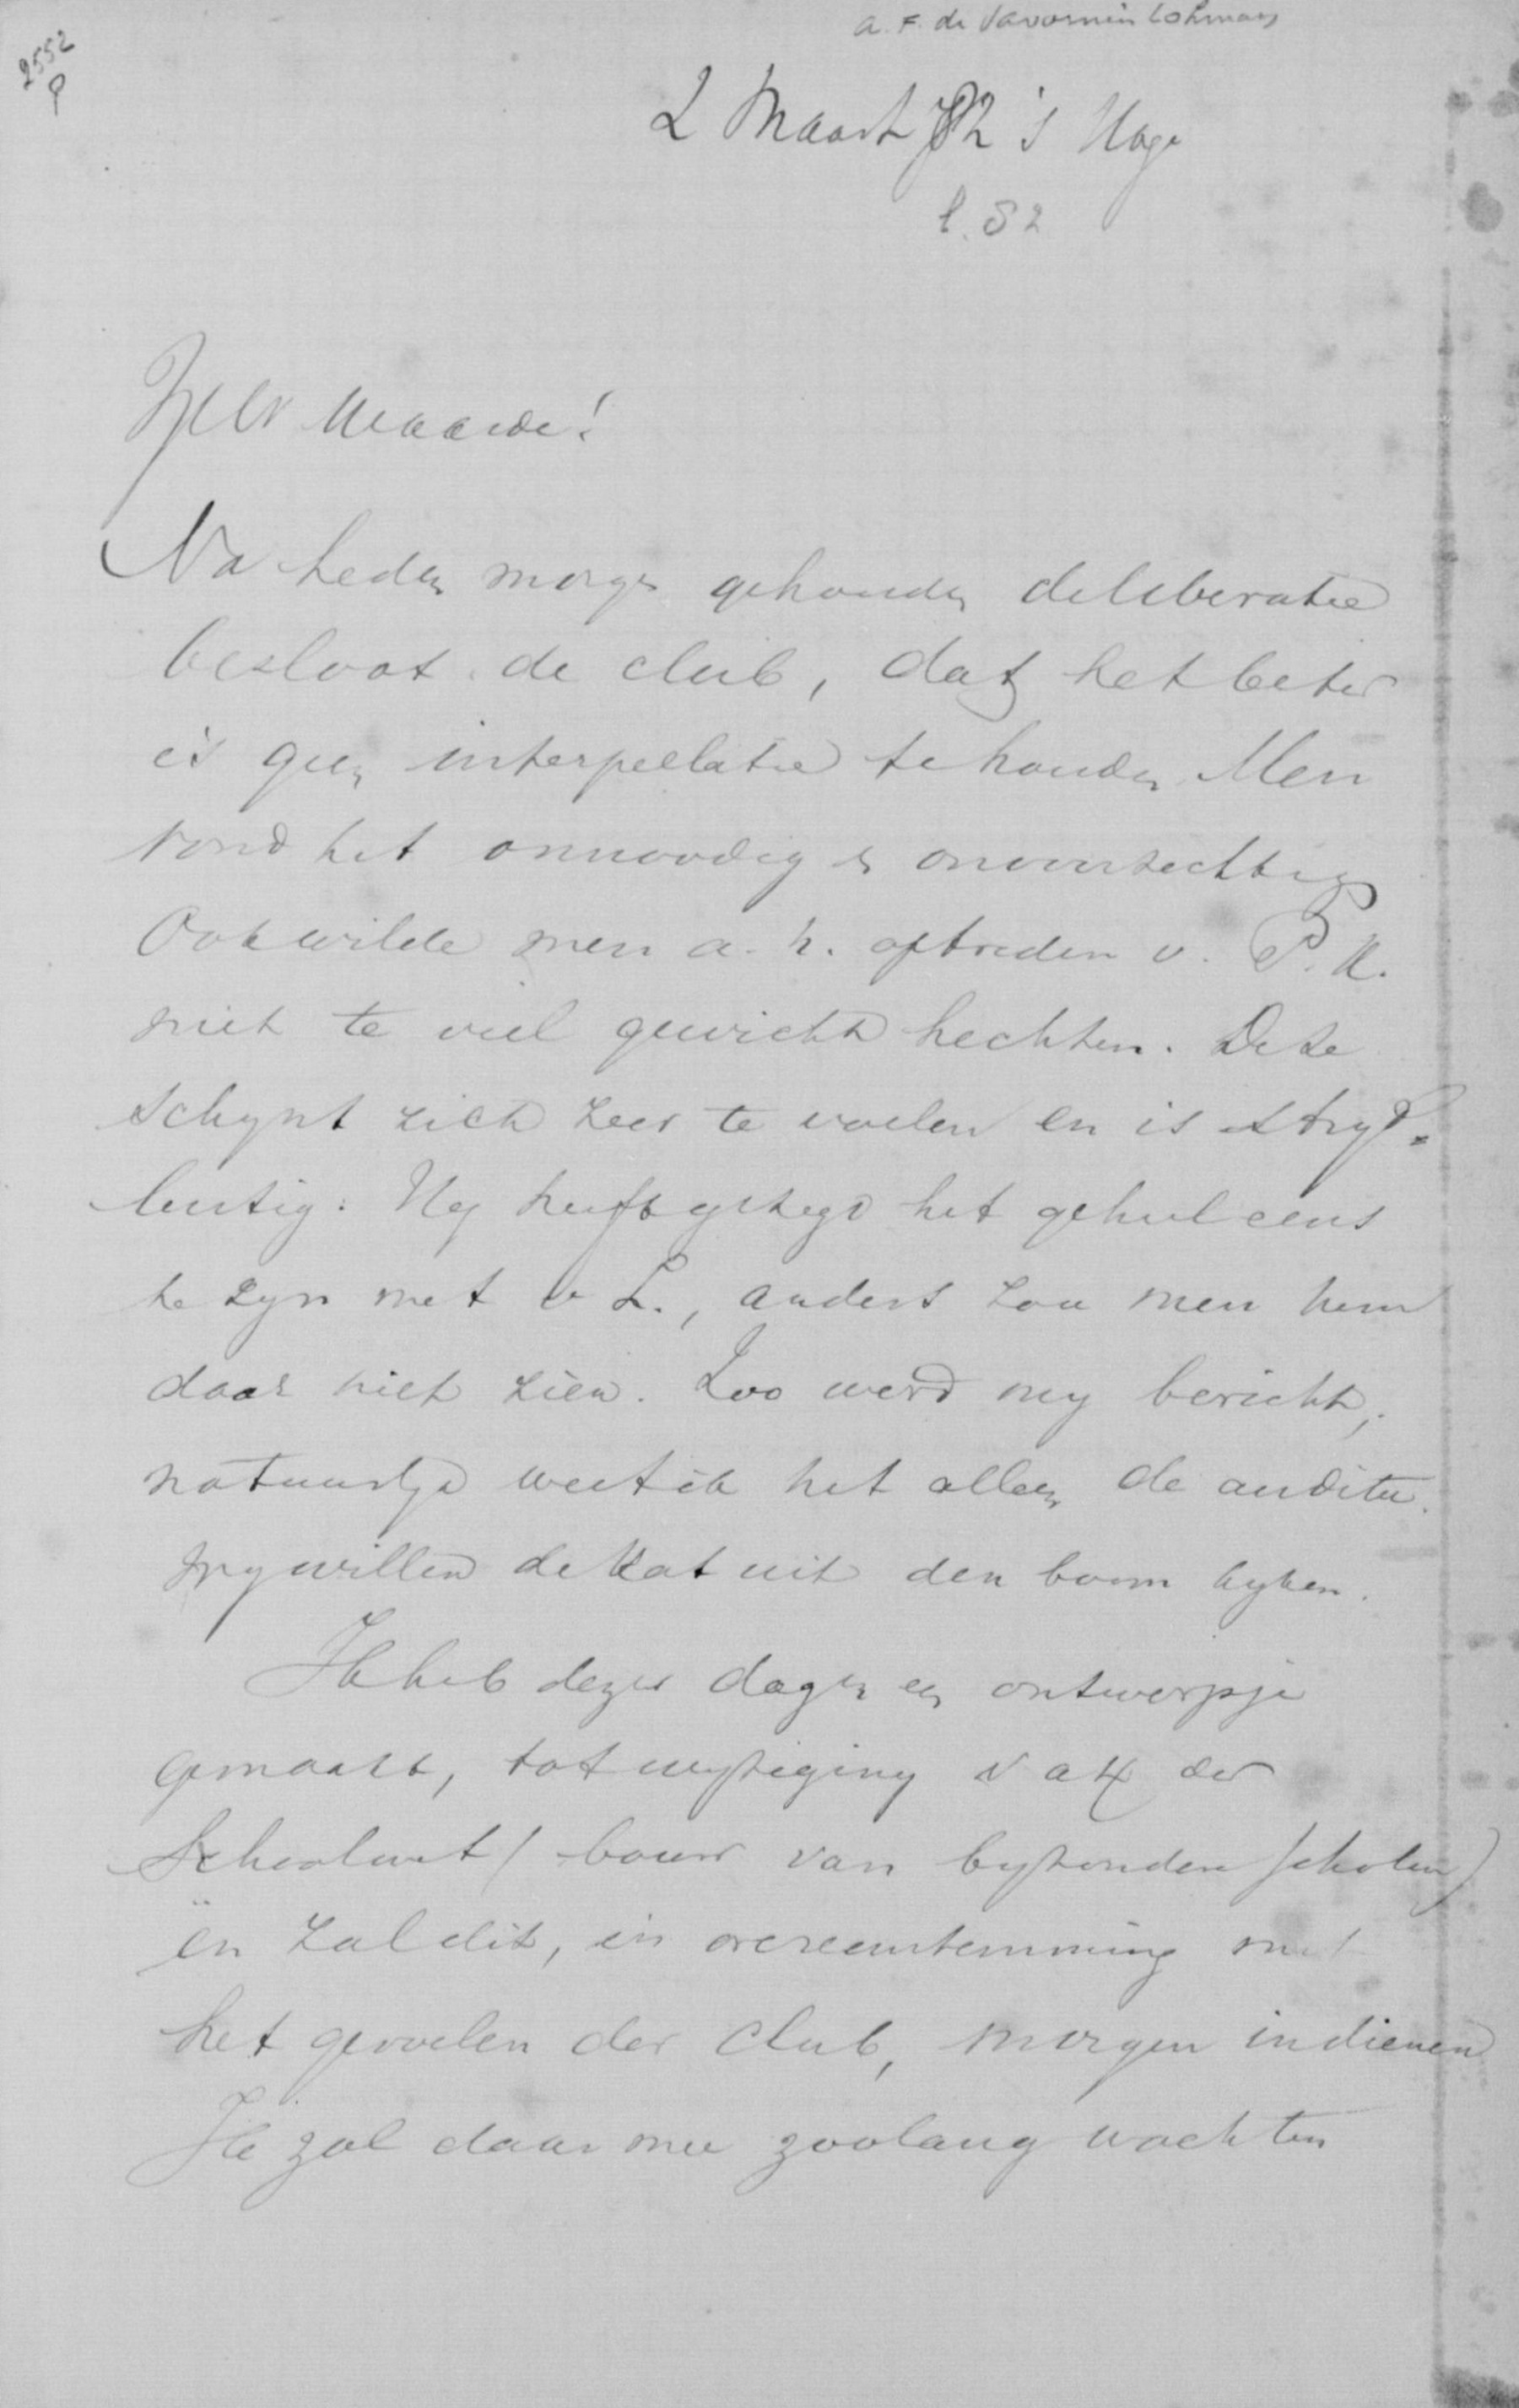 2552
A. F. de Savornin Lohman
2 Maart 82 's Hage
l. 82
Zeer Waarde!
Na heden morgen gehouden deliberatie
besloot de club, dat het beter
is geen interpellatie te houden. Men
vond het onnoodig en onvoorzichtig
Ook wilde men a. h. optreden v. P. K.
niet te veel gewicht hechten. Deze
schynt zich zeer te voelen en is stryd-
lustig. Hy heeft gezegd het geheel eens
te zyn met v L., anders zou men hem
daar niet zien. Zoo werd my bericht;
natuurlyk weet ik het alleen de auditu.
Wy willen de kat uit den boom kyken.
Ik heb dezer dagen een ontwerpje
gemaakt, tot wyziging v a 4 der
Schoolwet (bouw van byzondere scholen)
en zal dit, in overeenstemming met
het gevoelen der club, morgen indienen
Ik zal daarmee zoolang wachten